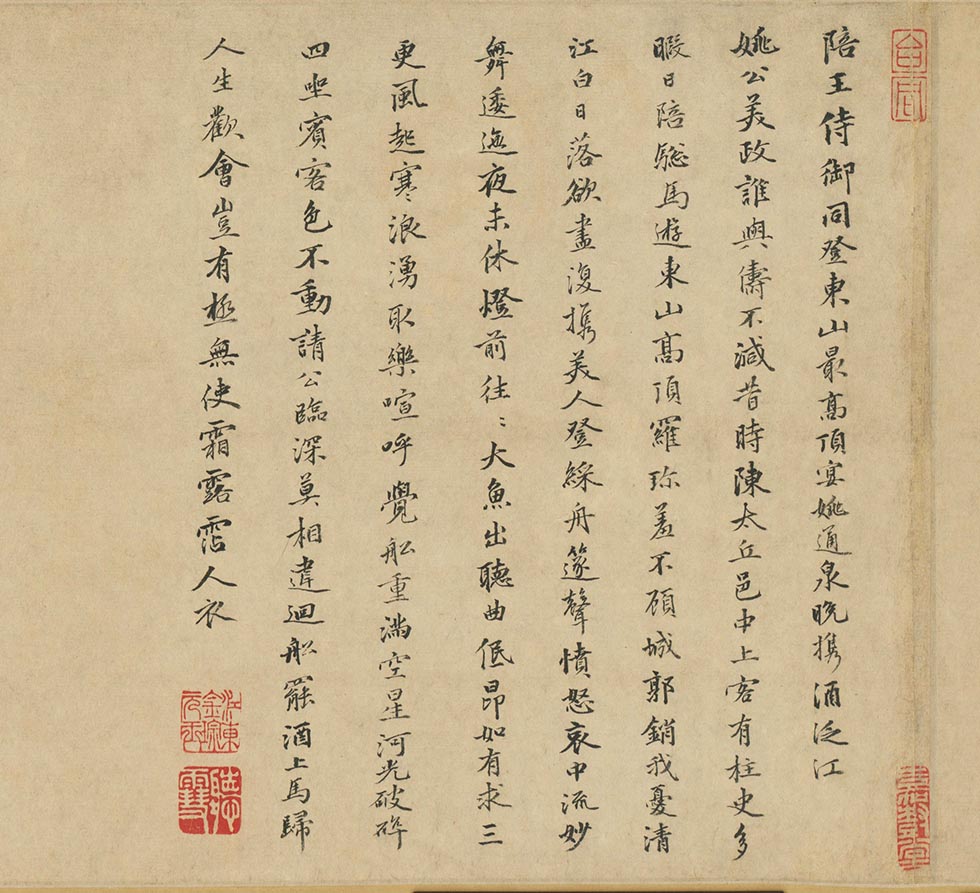 陪王侍御同登東山最髙頂宴姚通泉晚携酒泛江
姚公美政誰與儔不減昔時陳太丘邑中上客有柱史多
暇日陪驄馬遊東山髙頂羅珎羞不顧城郭銷我憂清
江白日落欲盡復携美人登綵舟篴聲憤怒哀中流妙
舞逶迤夜未休燈前往〻大魚出聽曲低昂如有求三
更風起寒浪湧取樂喧呼覺舩重滿空星河光破碎
四坐賓客色不動請公臨深莫相違迴舩罷酒上馬歸
人生歡會豈有極無使霜露霑人衣
江東金琮元玉